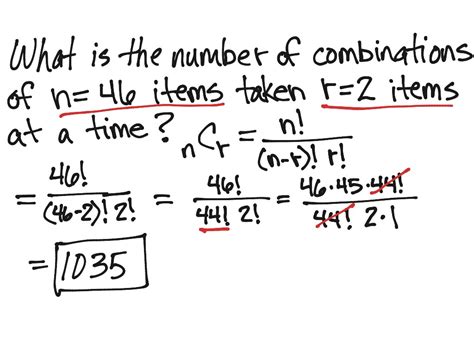 What is the number of combinations
of n= 46 items taken r=2 items
at a time? nCr = n! / (n-r)! r!
= 46! / (46-2)! 2! = 46! / 44! 2! = 46·45·44! / 44! 2·1
= 1035